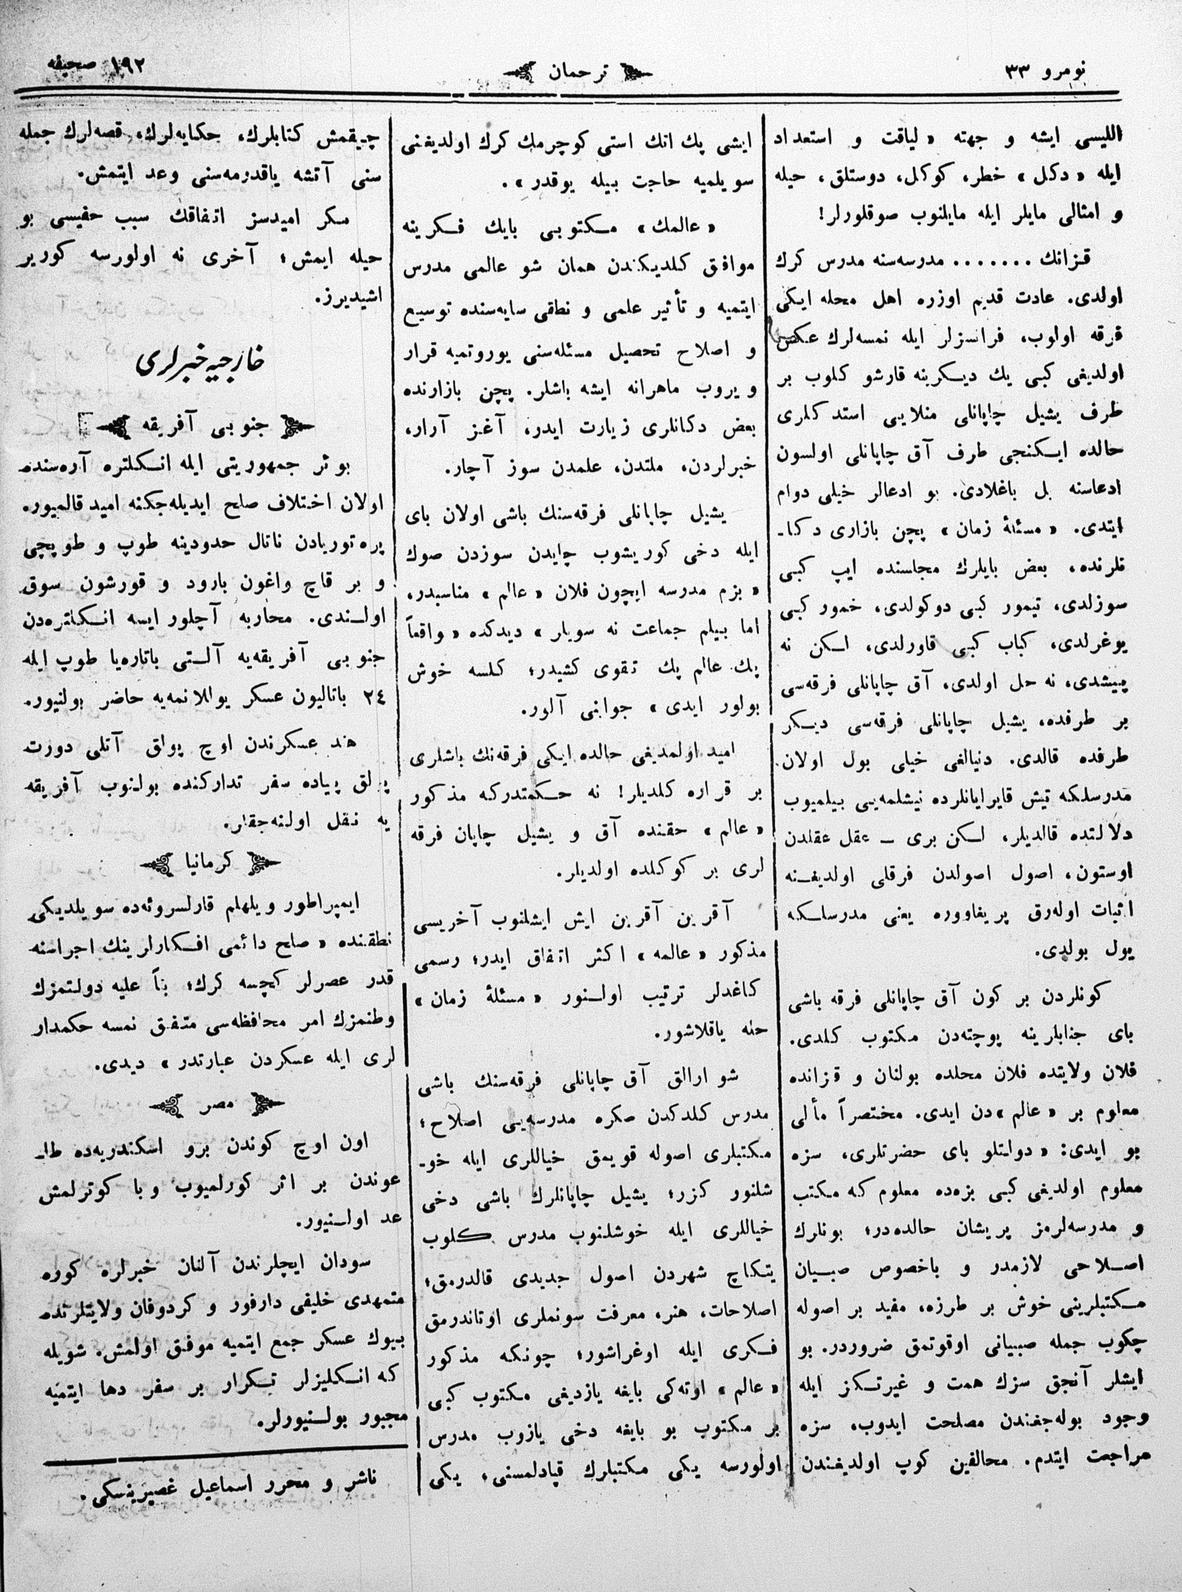 نومرو ٣٣
ترجمان
١٩٢ صحيفه
اللیسی ایشه و جهته « لیاقت و استعداد
ایله « دكل » خطر، كوكل، دوستلق، حیله
و امثالی مایلر ایله مایلنوب صوقلورلر!
قزانك ....... مدرسه‌سنه مدرس كرك
اولدی. عادت قدیم اوزره اهل محله ایكی
فرقه اولوب، فرانسزلر ایله نمسه‌لرك عكس
اولدیغی كبی یك دیكرینه قارشو كلوب بر
طرف یشیل چاپانلی منلایی استدكلری
حالده ایكنجی طرف آق چاپانلی اولسون
ادعاسنه بل باغلادی. بو ادعالر خیلی دوام
ایتدی. « مسئلهٔ زمان » پچن بازاری دكا-
نلرنده، بعض بایلرك مجلسنده ایپ كبی
سوزلدی، تیمور كبی دوكولدی، خمور كبی
یوغرلدی، كباب كبی قاورلدی، لسكن نه
پیشدی، نه حل اولدی، آق چاپانلی فرقه‌سی
بر طرفده، یشیل چاپانلی فرقه‌سی دیكر
طرفده قالدی. دنیالغی خیلی بول اولان
مدرسلكه تیش قایرایانلرده نیشلمه‌یی بیلمیوب
دلالتده قالدیلر، لسكن بری — عقل عقلدن
اوستون، اصول اصولدن فرقلی اولدیغنه
اثبات اوله‌رق پریفاووره یعنی مدرسلكه
یول بولدی.
كونلردن بر كون آق چاپانلی فرقه باشی
بای جنابلرینه پوچته‌دن مكتوب كلدی.
فلان ولایتده فلان محلده بولنان و قزانده
معلوم بر « عالم »دن ایدی. مختصراً مألی
بو ایدی: « دولتلو بای حضرتلری، سزه
معلوم اولدیغی كبی بزه‌ده معلوم كه مكتب
و مدرسه‌لرمز پریشان حالده‌در؛ بونلرك
اصلاحی لازمدر و باخصوص صبیان
مكتبلرینی خوش بر طرزه، مفید بر اصوله
چكوب جمله صبیانی اوقوتمق ضروردر. بو
ایشلر آنجق سزك همت و غیرتكز ایله
وجود بوله‌جغندن مصلحت ایدوب، سزه
مراجعت ایتدم. محالفین كوپ اولدیغندن
ایشی پك انك استی كوچرمك كرك اولدیغنی
سویلمیه حاجت بیله یوقدر ».
« عالمك » مكتوبی بایك فكرینه
موافق كلدیكندن همان شو عالمی مدرس
ایتمیه و تأثیر علمی و نطاقی سایه‌سنده توسیع
و اصلاح تحصیل مسئله‌سنی یوروتمیه قرار
ویروب ماهرانه ایشه باشلر. پچن بازارنده
بعض دكانلری زیارت ایدر، آغز آرار،
خبرلردن، ملتدن، علمدن سوز آچار.
یشیل چاپانلی فرقه‌سنك باشی اولان بای
ایله دخی كوریشوب چایدن سوزدن صوك
« بزم مدرسه ایچون فلان « عالم » مناسبدر،
اما بیلم جماعت نه سویلر » دیدكده « واقعاً
پك عالم پك تقوی كشیدر؛ كلسه خوش
بولور ایدی » جوابنی آلور.
امید اولمدیغی حالده ایكی فرقه‌نك باشلری
بر قراره كلدیلر! نه حكمتدركه مذكور
« عالم » حقنده آق و یشیل چاپان فرقه
لری بر كوكلده اولدیلر.
آقرین آقرین ایش ایشلنوب آخریسی
مذكور « عالمه » اكثر اتفاق ایدر؛ رسمی
كاغدلر ترتیب اولنور « مسئلهٔ زمان »
حله یاقلاشور.
شو ارالق آق چاپانلی فرقه‌سنك باشی
مدرس كلدكدن صكره مدرسه‌یی اصلاح؛
مكتبلری اصوله قویمق خیاللری ایله خو-
شلنور كزر؛ یشیل چاپانلرك باشی دخی
خیاللری ایله خوشلنوب مدرس كلوب
یتكاچ شهردن اصول جدیدی قالدرمق؛
اصلاحات، هنر، معرفت سونملری اوتاندرمق
فكری ایله اوغراشور؛ چونكه مذكور
« عالم » اوته‌كی بایغه یازدیغی مكتوب كبی
بر مكتوب بو بایغه دخی یازوب مدرس
اولورسه یكی مكتبلرك قپادلمسنی، یكی
چیقمش كتابلرك، حكایه‌لرك، قصه‌لرك جمله
سنی آتشه یاقدرمه‌سنی وعد ایتمش.
مكر امیدسز اتفاقك سبب حفیسی بو
حیله ایمش؛ آخری نه اولورسه كوریر
اشیدیرز.
خارجیه خبرلری
جنوبی آفریقه
بوئر جمهوریتی ایله انكلتره آره‌سنده
اولان اختلاف صلح ایدیله‌جكنه امید قالمیور.
پره‌توریادن ناتال حدودینه طوپ و طوپچی
و بر قاچ واغون بارود و قورشون سوق
اولندی. محاربه آچلور ایسه انكلتره‌دن
جنوبی آفریقه‌یه آلتی باتاره‌یا طوپ ایله
٢٤ باتالیون عسكر یوللانمه‌یه حاضر بولنیور.
هند عسكرندن اوچ پولق آتلی دورت
پولق پیاده سفر تداركنده بولنوب آفریقه
یه نقل اولنه‌جقلر.
كرمانیا
ایمپراطور ویلهلم قارلسروئه‌ده سویلدیكی
نطقنده « صلح دائمی افكارلرینك اجراسنه
قدر عصرلر كچسه كرك؛ بناً علیه دولتمزك
وطنمزك امر محافظه‌سی متفق نمسه حكمدار
لری ایله عسكردن عبارتدر » دیدی.
مصر
اون اوچ كوندن برو اسكندریه‌ده طا-
عوندن بر اثر كورلمیوب وبا كوترلمش
عد اولنیور.
سودان ایچلرندن آلنان خبرلره كوره
متمهدی خلیفی دارفور و كردوفان ولایتلرنده
بیوك عسكر جمع ایتمیه موفق اولمش، شویله
كه انكلیزلر تكرار بر سفر دها ایتمیه
مجبور بولنیورلر.
ناشر و محرر اسماعیل غصپرینسكی.